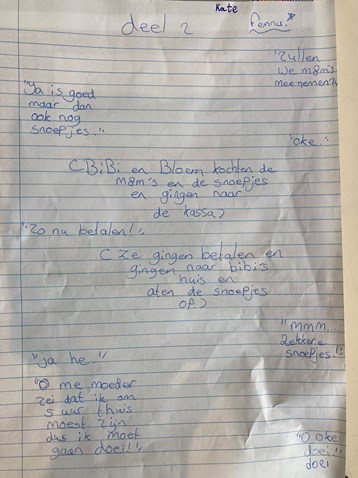 Kate
deel 2 Fenna.*
"Zullen
we m&m's
meenemen?"
"Ja is goed
maar dan
ook nog
snoepjes."
"oke."
(BiBi en Bloem kochten de
m&m's en de snoepjes
en gingen naar
de kassa)
"Zo nu betalen!"
(Ze gingen betalen en
gingen naar bibi's
huis en
aten de snoepjes
op.)
"mmm....
Lekkere
snoepjes!"
"ja he.."
"O me moeder
zei dat ik om
5 uur thuis
moest zijn
dus ik moet
gaan doei!"
"O oke
doei
doei